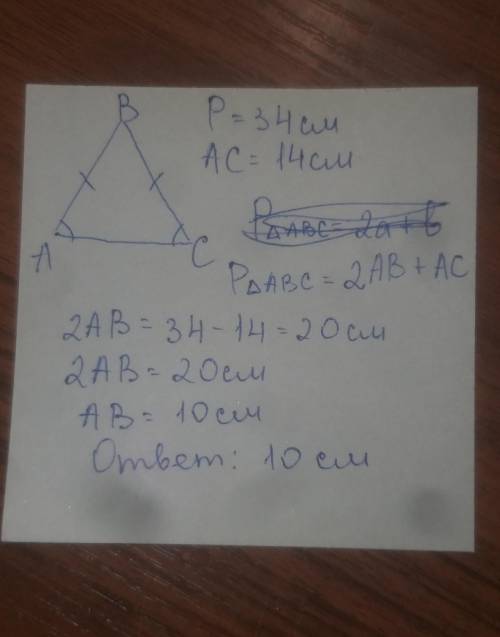 B
P = 34 см
AC = 14 см
A
C
P△ABC = 2a + b
P△ABC = 2AB + AC
2AB = 34 - 14 = 20 см
2AB = 20 см
AB = 10 см
Ответ: 10 см